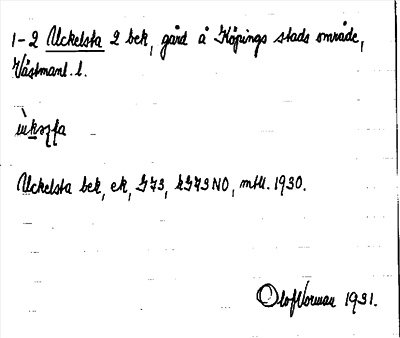 1-2 Uckelsta 2 bek, gård å Köpings stads område,
Västmanl. l.
Uckelsta bek, ek, J73, kJ73NO, mtll. 1930.
Olof Norman 1931.